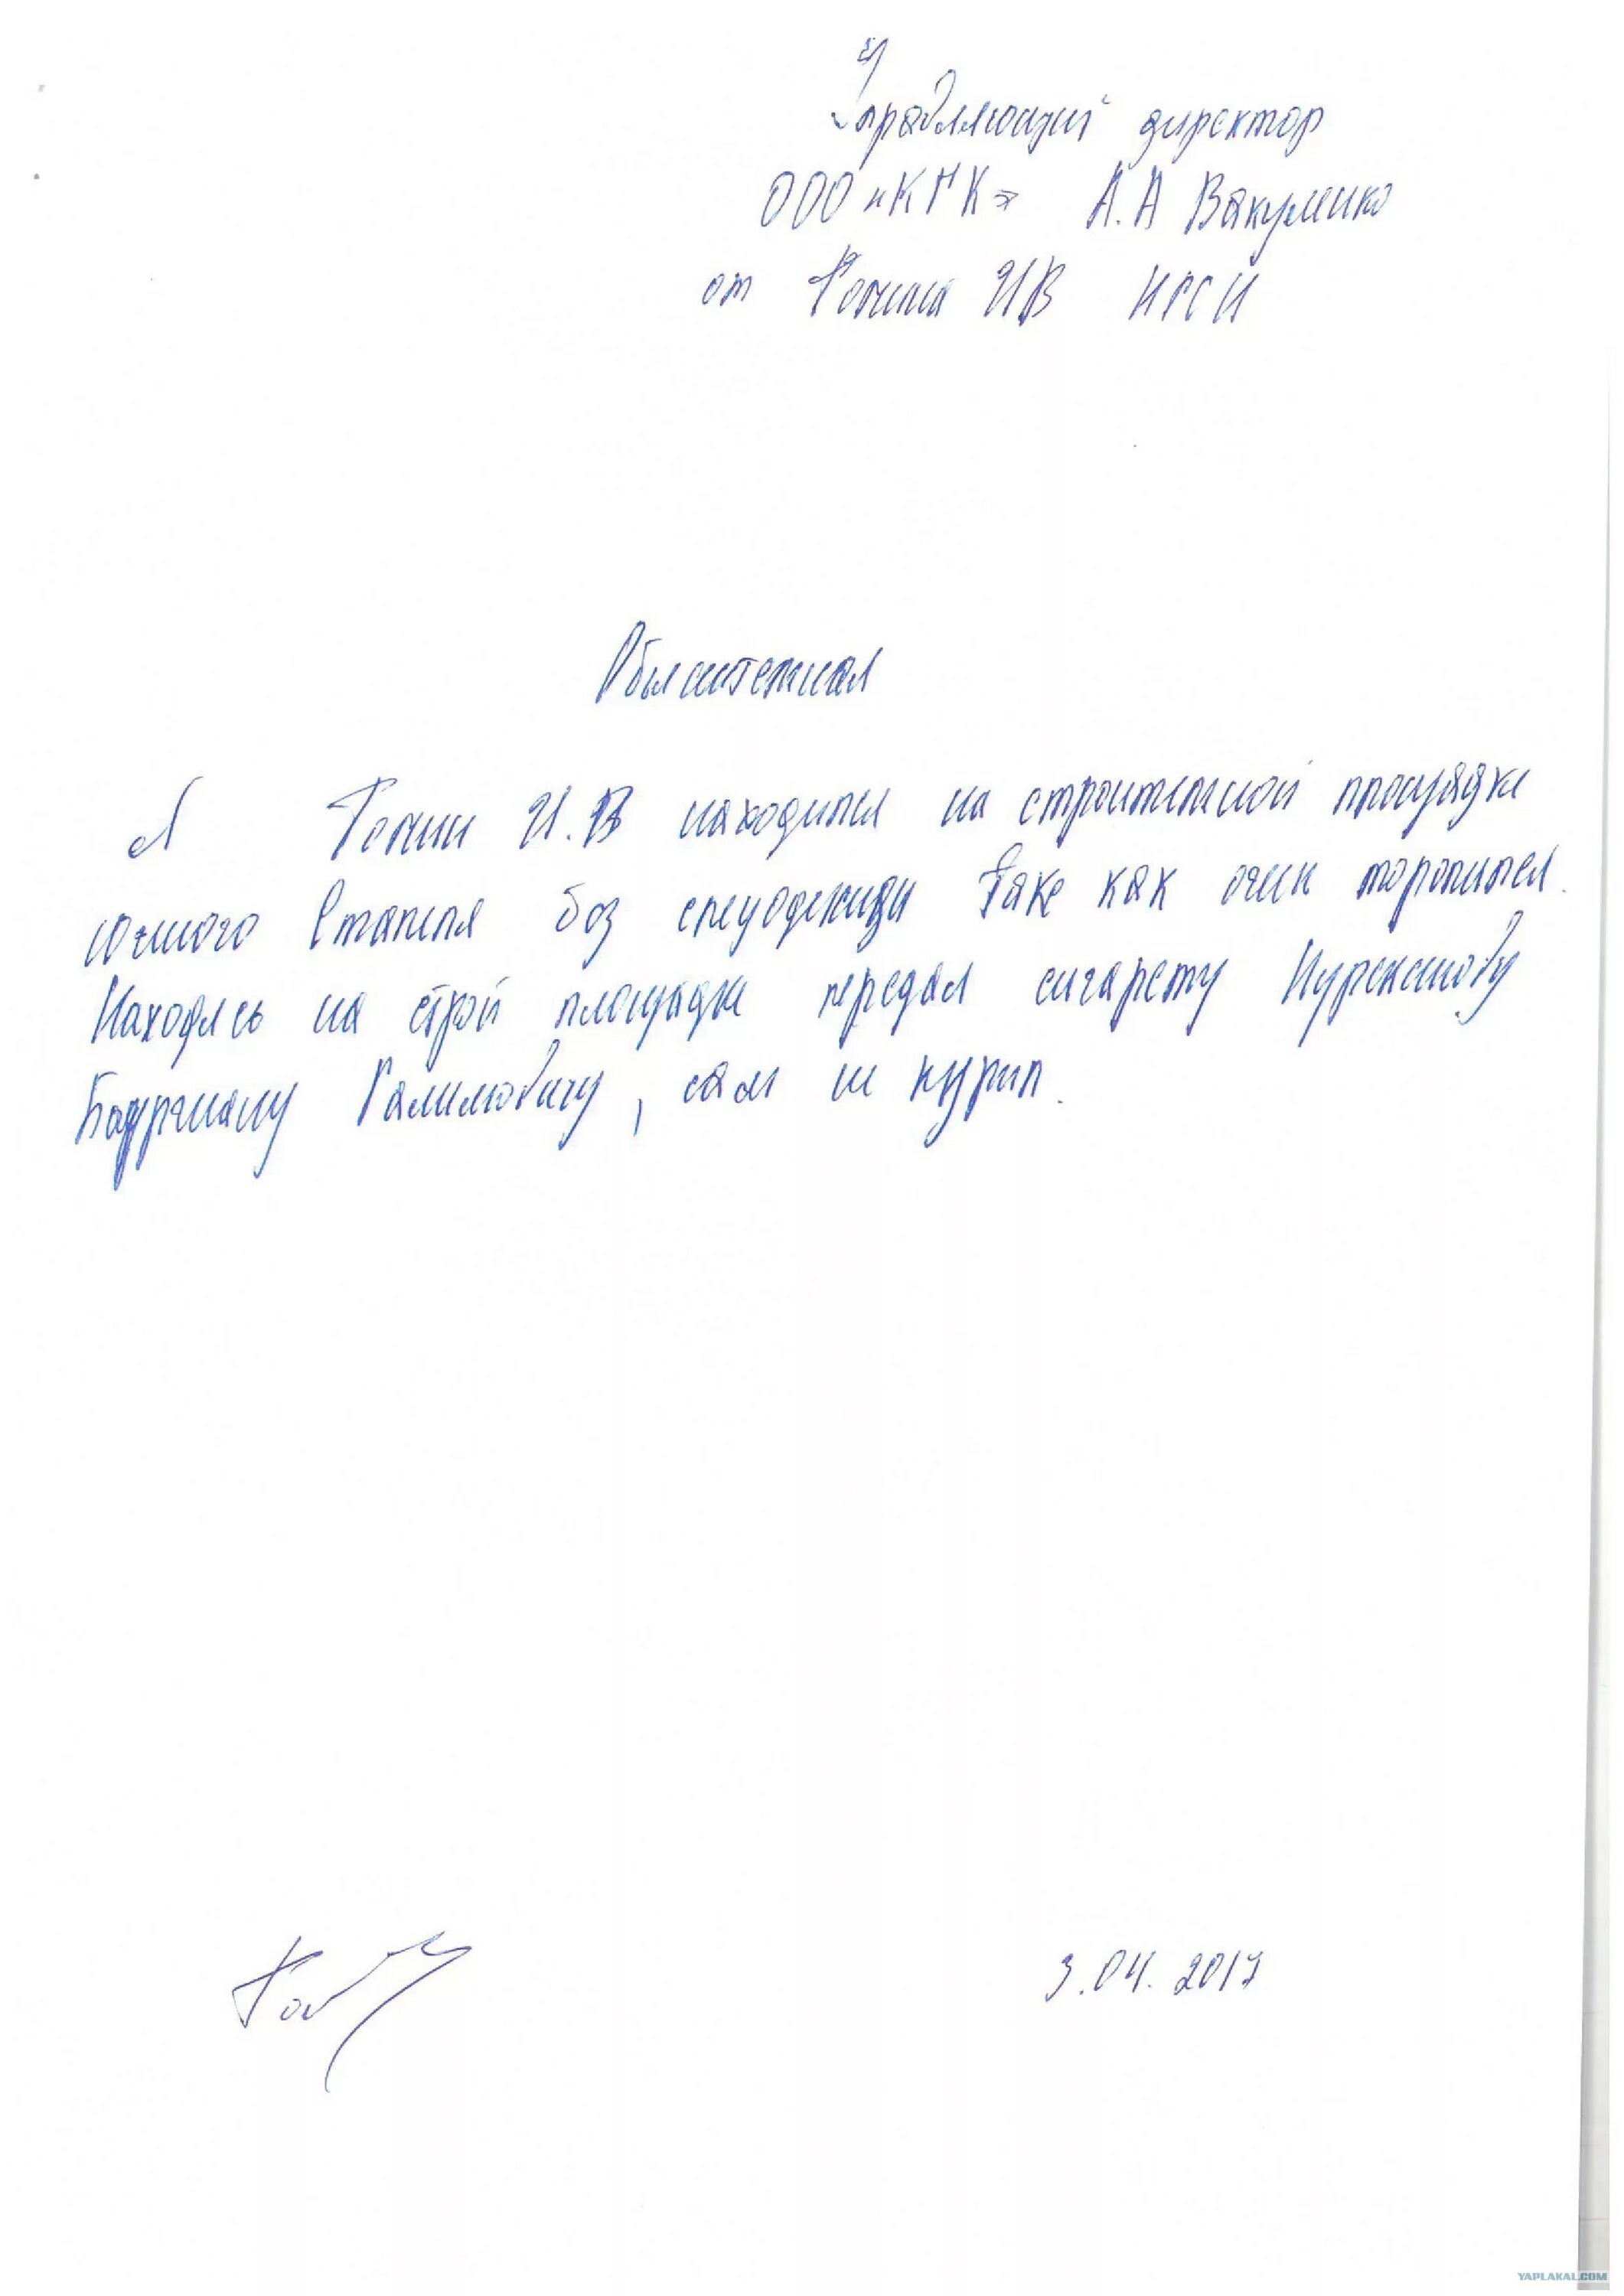 Управляющий директор
ООО «КГК» А.А Вакуленко
от Рогина ИВ НГСИ
Объснителная
Я Рогин И.В находился на строителной площадке
южного Стапеля без спецодежди таке как очен торопился.
Находясь на строй площадке передал сигарету
Галимовичу, сам не курил.
3.04.2017
YAPLAKAL.COM